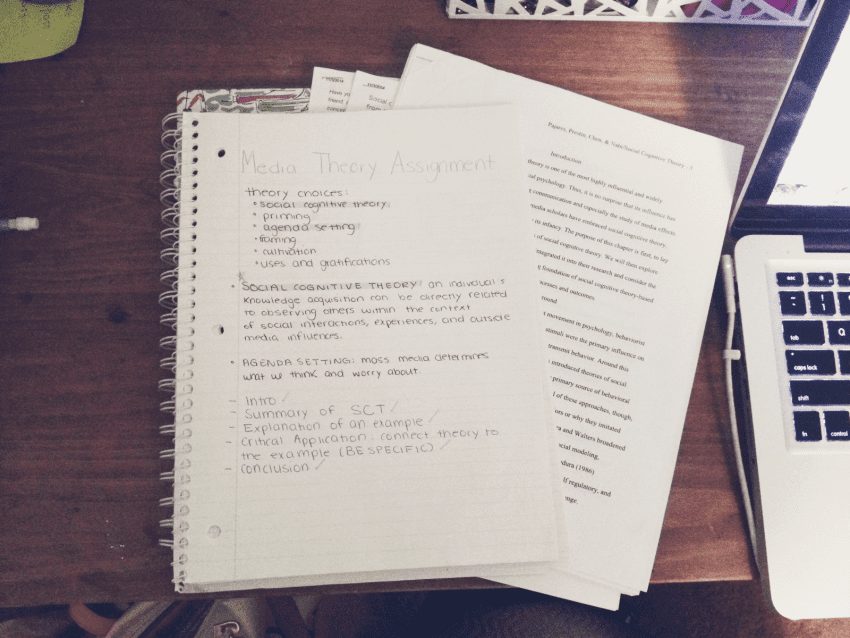 Media Theory Assignment
theory choices:
• social cognitive theory
• priming
• agenda setting
• framing
• cultivation
• uses and gratifications
• SOCIAL COGNITIVE THEORY: an individual's
knowledge acquisition can be directly related
to observing others within the context
of social interactions, experiences, and outside
media influences.
• AGENDA SETTING: mass media determines
what we think and worry about.
- Intro ✓
- Summary of SCT ✓
- Explanation of an example ✓
- Critical Application: connect theory to
the example (BE SPECIFIC) ✓
- conclusion ✓
Social c
from
Pajares, Prestin, Chen, & Nabi/Social Cognitive Theory - 1
Introduction
theory is one of the most highly influential and widely
psychology. Thus, it is no surprise that its influence has
communication and especially the study of media effects
media scholars have embraced social cognitive theory,
its infancy. The purpose of this chapter is first, to lay
of social cognitive theory. We will then explore
integrated it into their research and consider the
foundation of social cognitive theory-based
processes and outcomes.
movement in psychology, behaviorist
stimuli were the primary influence on
transmit behavior. Around this
introduced theories of social
primary source of behavioral
of these approaches, though,
or why they imitated
and Walters broadened
social modeling,
(1986)
lf regulatory, and
esc
tab
caps lock
shift
fn
control